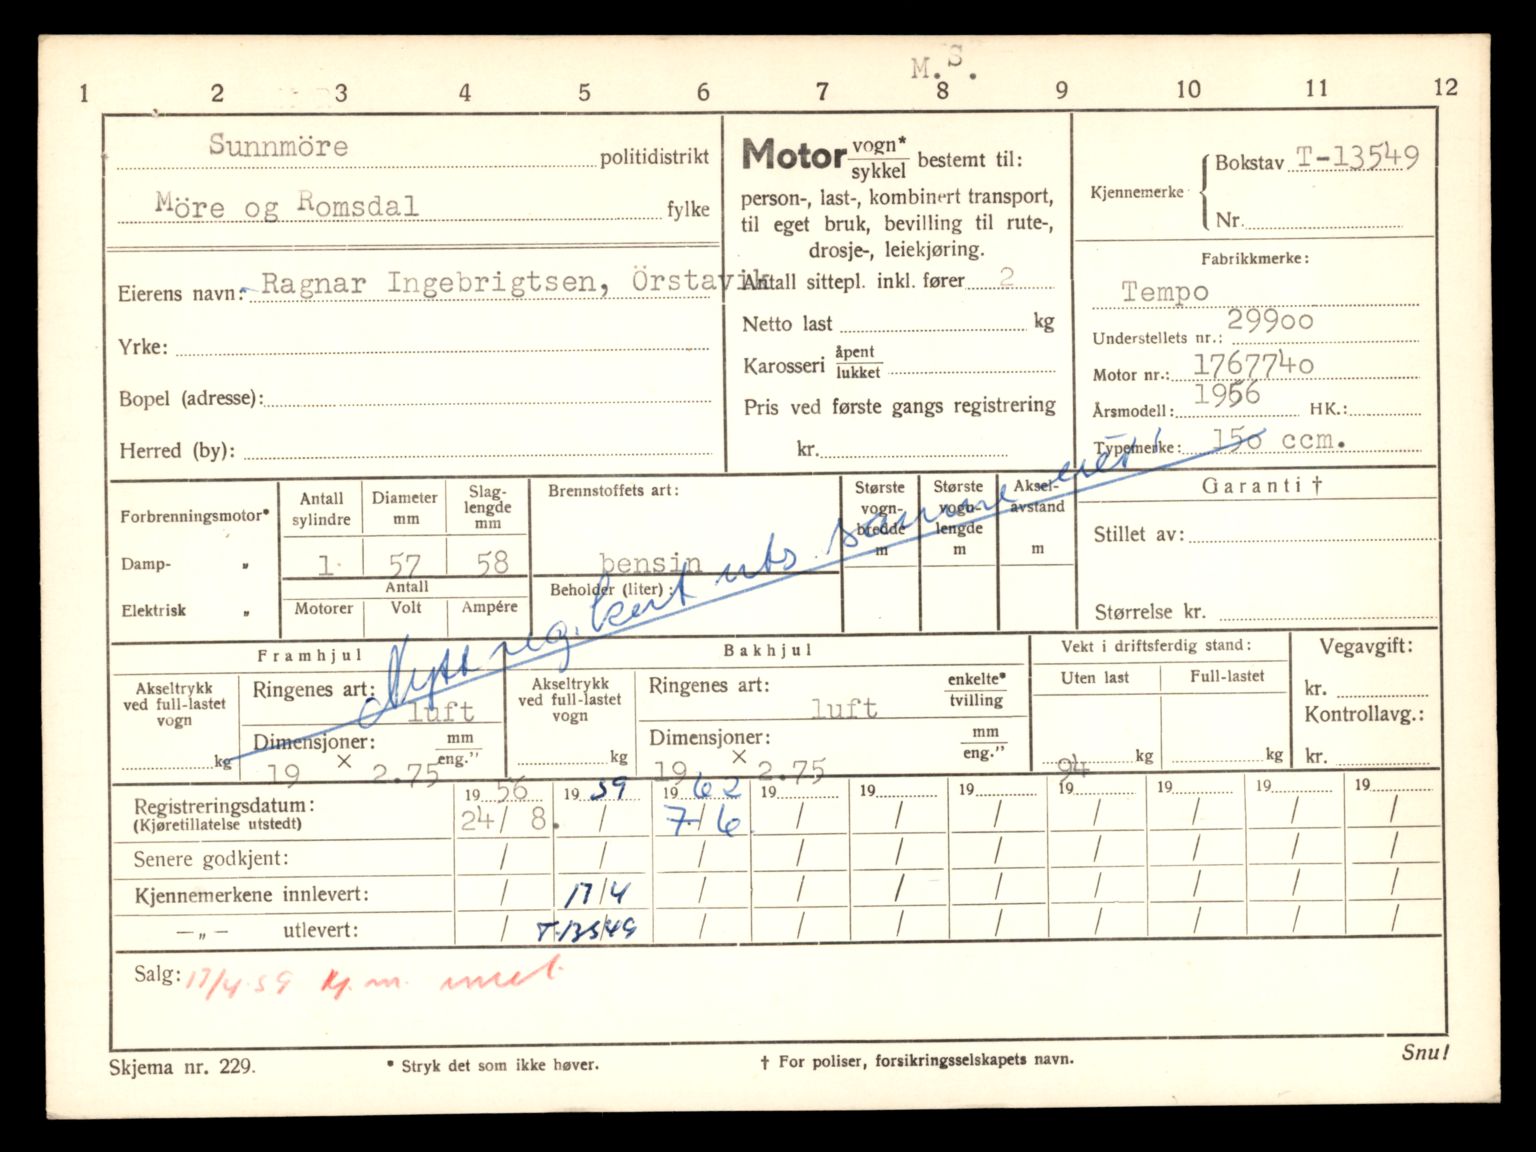 M.S.
1 2 3 4 5 6 7 8 9 10 11 12
Sunnmöre politidistrikt
Möre og Romsdal fylke
Eierens navn: Ragnar Ingebrigtsen, Örstavik
Yrke:
Bopel (adresse):
Herred (by):
Motor vogn*/sykkel bestemt til:
person-, last-, kombinert transport,
til eget bruk, bevilling til rute-,
drosje-, leiekjøring.
Antall sittepl. inkl. fører 2
Netto last kg
Karosseri åpent/lukket
Pris ved første gangs registrering
kr.
Kjennemerke { Bokstav T-13549
Nr.
Fabrikkmerke:
Tempo
Understellets nr.: 29900
Motor nr.: 1767740
Årsmodell: 1956 HK.:
Typemerke: 150 ccm.
Forbrenningsmotor*
Damp- „
Elektrisk „
Antall sylindre
Diameter mm
Slag-lengde mm
1 57 58
Antall
Motorer Volt Ampére
Brennstoffets art:
bensin
Beholder (liter):
Største vogn-bredde m
Største vogn-lengde m
Aksel-avstand m
Garanti †
Stillet av:
Størrelse kr.
Nytt reg.kort uts samme eier
Framhjul
Akseltrykk ved full-lastet vogn
kg
Ringenes art:
luft
Dimensjoner: mm/eng."
19 x 2.75
Bakhjul
Akseltrykk ved full-lastet vogn
kg
Ringenes art: enkelte*/tvilling
luft
Dimensjoner: mm/eng."
19 x 2.75
Vekt i driftsferdig stand:
Uten last Full-lastet
94 kg kg
Vegavgift:
kr.
Kontrollavg.:
kr.
Registreringsdatum: 19 56 19 59 19 62 19 19 19 19 19 19 19
(Kjøretillatelse utstedt) 24/ 8. / 7/6 / / / / / / /
Senere godkjent: / / / / / / / / / /
Kjennemerkene innlevert: / 17/4 / / / / / / / /
—„— utlevert: / T-13549 / / / / / / / /
Salg: 17/4-59 Kj.m. innl.
Skjema nr. 229.
* Stryk det som ikke høver.
† For poliser, forsikringsselskapets navn.
Snu!